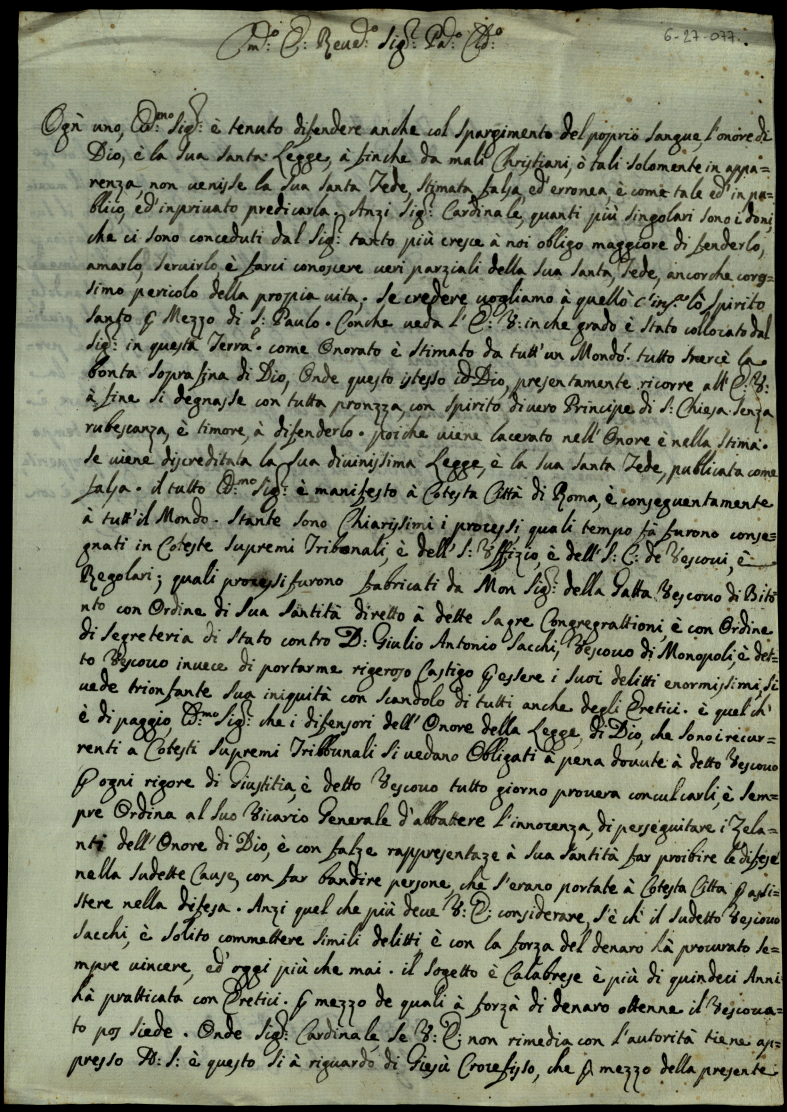 Em:º E: Reud:º Sig:r Pad:º Col:º
6-27-077.
Ogn' uno, Em:mo Sig:r è tenuto difendere anche col spargimento del poprio sangue, l'onore di
Dio, è la sua santa Legge, à finche da mali Christiani, ò tali solomente in appa=
renza, non venisse la sua santa Fede, stimata falsa ed'erronea, è come tale ed'in pu=
blico, ed'inprivato predicarla. Anzi Sig:r Cardinale, quanti più singolari sono i doni,
che ci sono conceduti dal Sig:r tanto più cresce à noi obligo maggiore di fenderlo,
amarlo, servirlo è farci conoscere veri parziali della sua santa Fede, ancorche
simo pericolo della propia vita. Se credere vogliamo à quello lo Spirito
Santo p Mezzo di S: Paulo. Conche veda l'E: V: in che grado è stato collocato dal
Sig:r in questa Terra. come Onorato è stimato da tutt'un Mondo. tutto mercè la
bonta soprafina di Dio, Onde questo istesso Dio, presentamente ricorre all'E: V:
à fine si degnasse con tutta con spirito di vero Principe di S: Chiesa senza
rubescanza, è timore, à difenderlo. poiche viene lacerato nell'Onore è nella stima.
Se viene discreditata la sua divinissima Legge, è la sua santa Fede, publicata come
falsa. il tutto Em:mo Sig:r è manifesto à Cotesta Città di Roma, è conseguentamente
à tutt'il Mondo. Stante sono Chiarissimi i processi, quali tempo fà furono conse=
gnati in Coteste supremi Tribonali, è dell'S: Uffizio, è dell'S: C: de Vescovi, è
Regolari; quali processi furono fabricati da Mon Sig:r della Gatta Vescovo di Bito
nto con Ordine di Sua Santità diretto à dette Sagre Congregrattioni, è con Ordine
di Segreteria di Stato contro D: Giulio Antonio Sacchi, Vescovo di Monopoli, è det=
to Vescovo invece di portarme rigeroso Castigo p essere i suoi delitti enormissimi, si
vede trionfante sua iniquità con scandolo di tutti anche degli Eretici. è quel ch'
è di paggio, Em:mo Sig:r che i difensori dell'Onore della Legge, di Dio, che sono i ricur=
renti a Cotesti supremi Tribbunali si vedano Obligati à pena dovute à detto Vescovo
p ogni rigore di Giustitia, è detto Vescovo tutto giorno provera conculcarli, è sem=
pre Ordina al suo Vicario Generale d'abbattere l'innocenza, di perseguitare i Zela=
nti dell'Onore di Dio, è con falze rappresentaze à sua santità far proibire le difese
nella sudette Cause, con far bandire persone, che s'erano portate à Cotesta Citta p assi=
stere nella difesa. Anzi quel che più deve V: E: considerare, s'è ch' il sudetto Vescovo
Sacchi, è solito commettere simili delitti è con la forza del denaro hà procurato se=
mpre vincere, ed'oggi più che mai. il sogetto è Calabrese è più di quindeci Anni
hà pratticata con Eretici. p mezzo de quali à forza di denaro ottenne il Vescova=
to pos siede. Onde Sig:r Cardinale, se V: E: non rimedia con l'autorità tiene ap=
presso N: S: è questo si à riguardo di Giesù Crocefisso, che p mezzo della presente